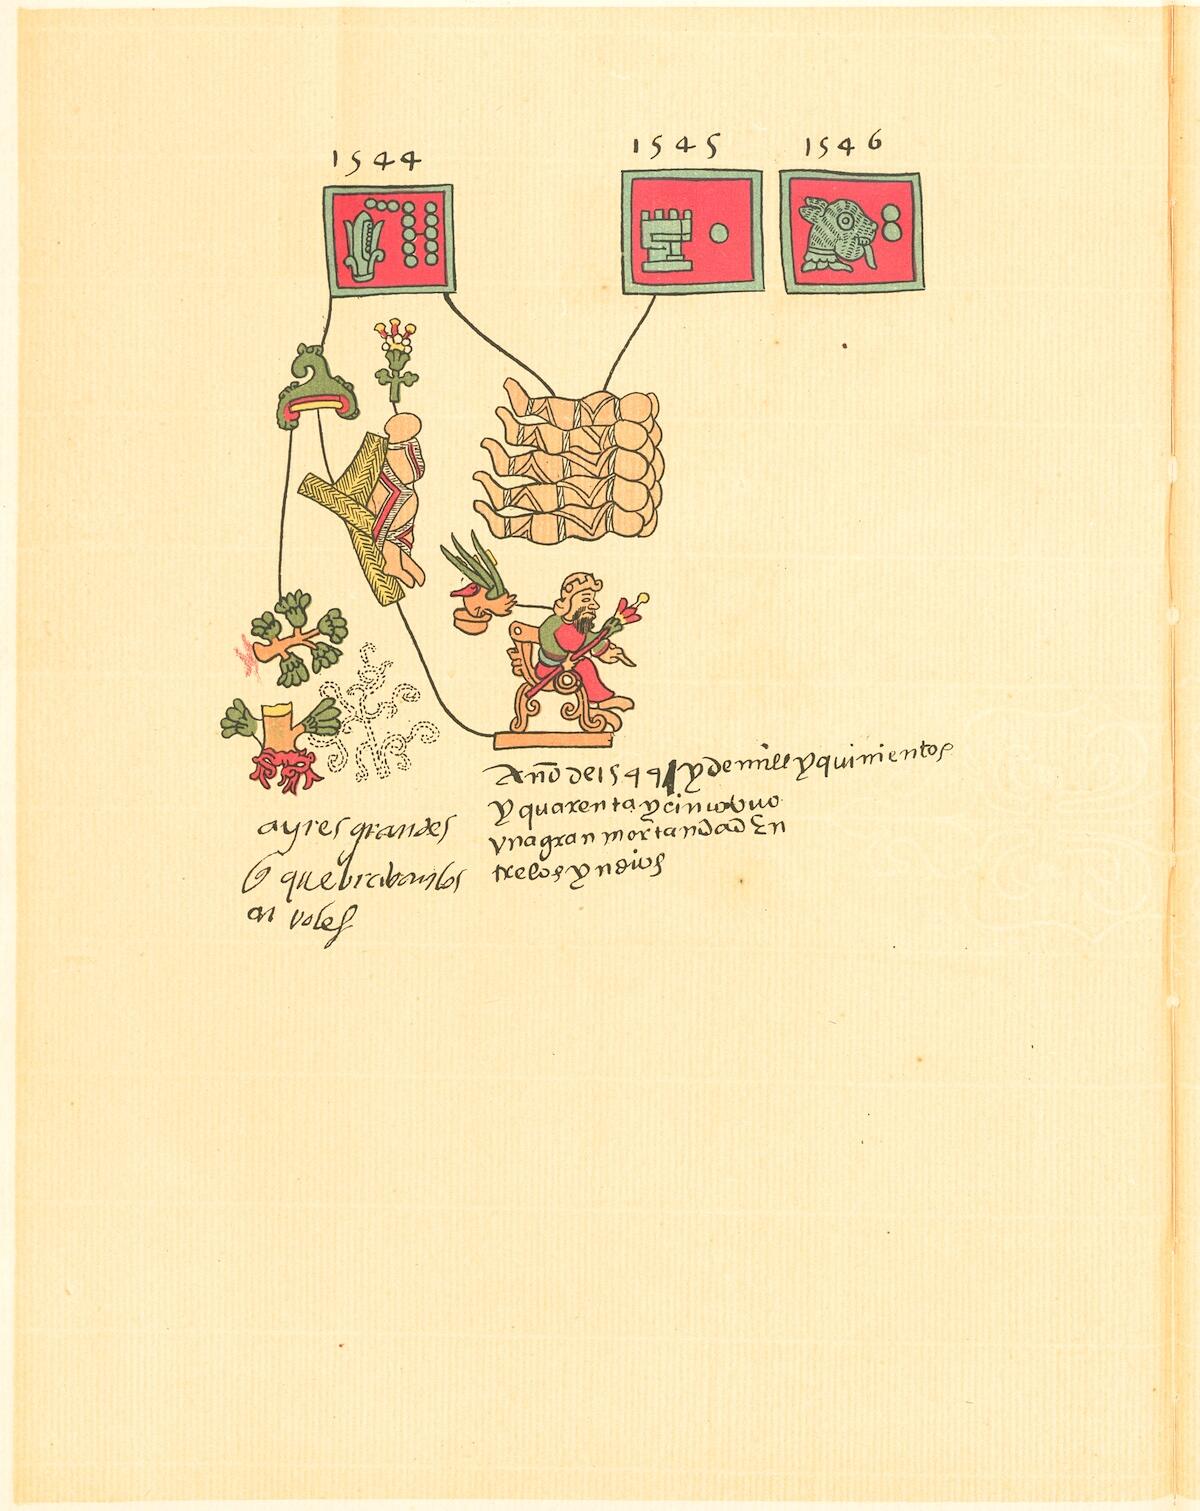 1544
1545
1546
Año de 1544 / y de mill y quinientos
y quarenta y cinco vuo
vna gran mortandad En
tre los yndios
ayres grandes
q quebrabanlos
arvoles